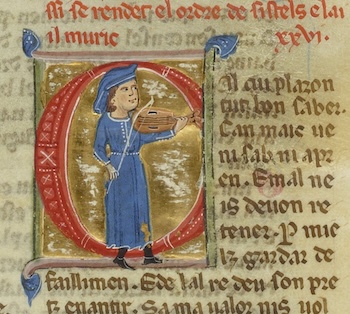 ssi se rendet el ordre de sistels e lai
il muric xxvi.
Al cui plazon
tut bon saber.
san maic ue
ni sab ni apr
en. E mal ne
is deuon re
tener. P mie
lz gardar de
faillimen. E de bal re deu son pre
tz enantir. Sa ma ualor nis uol